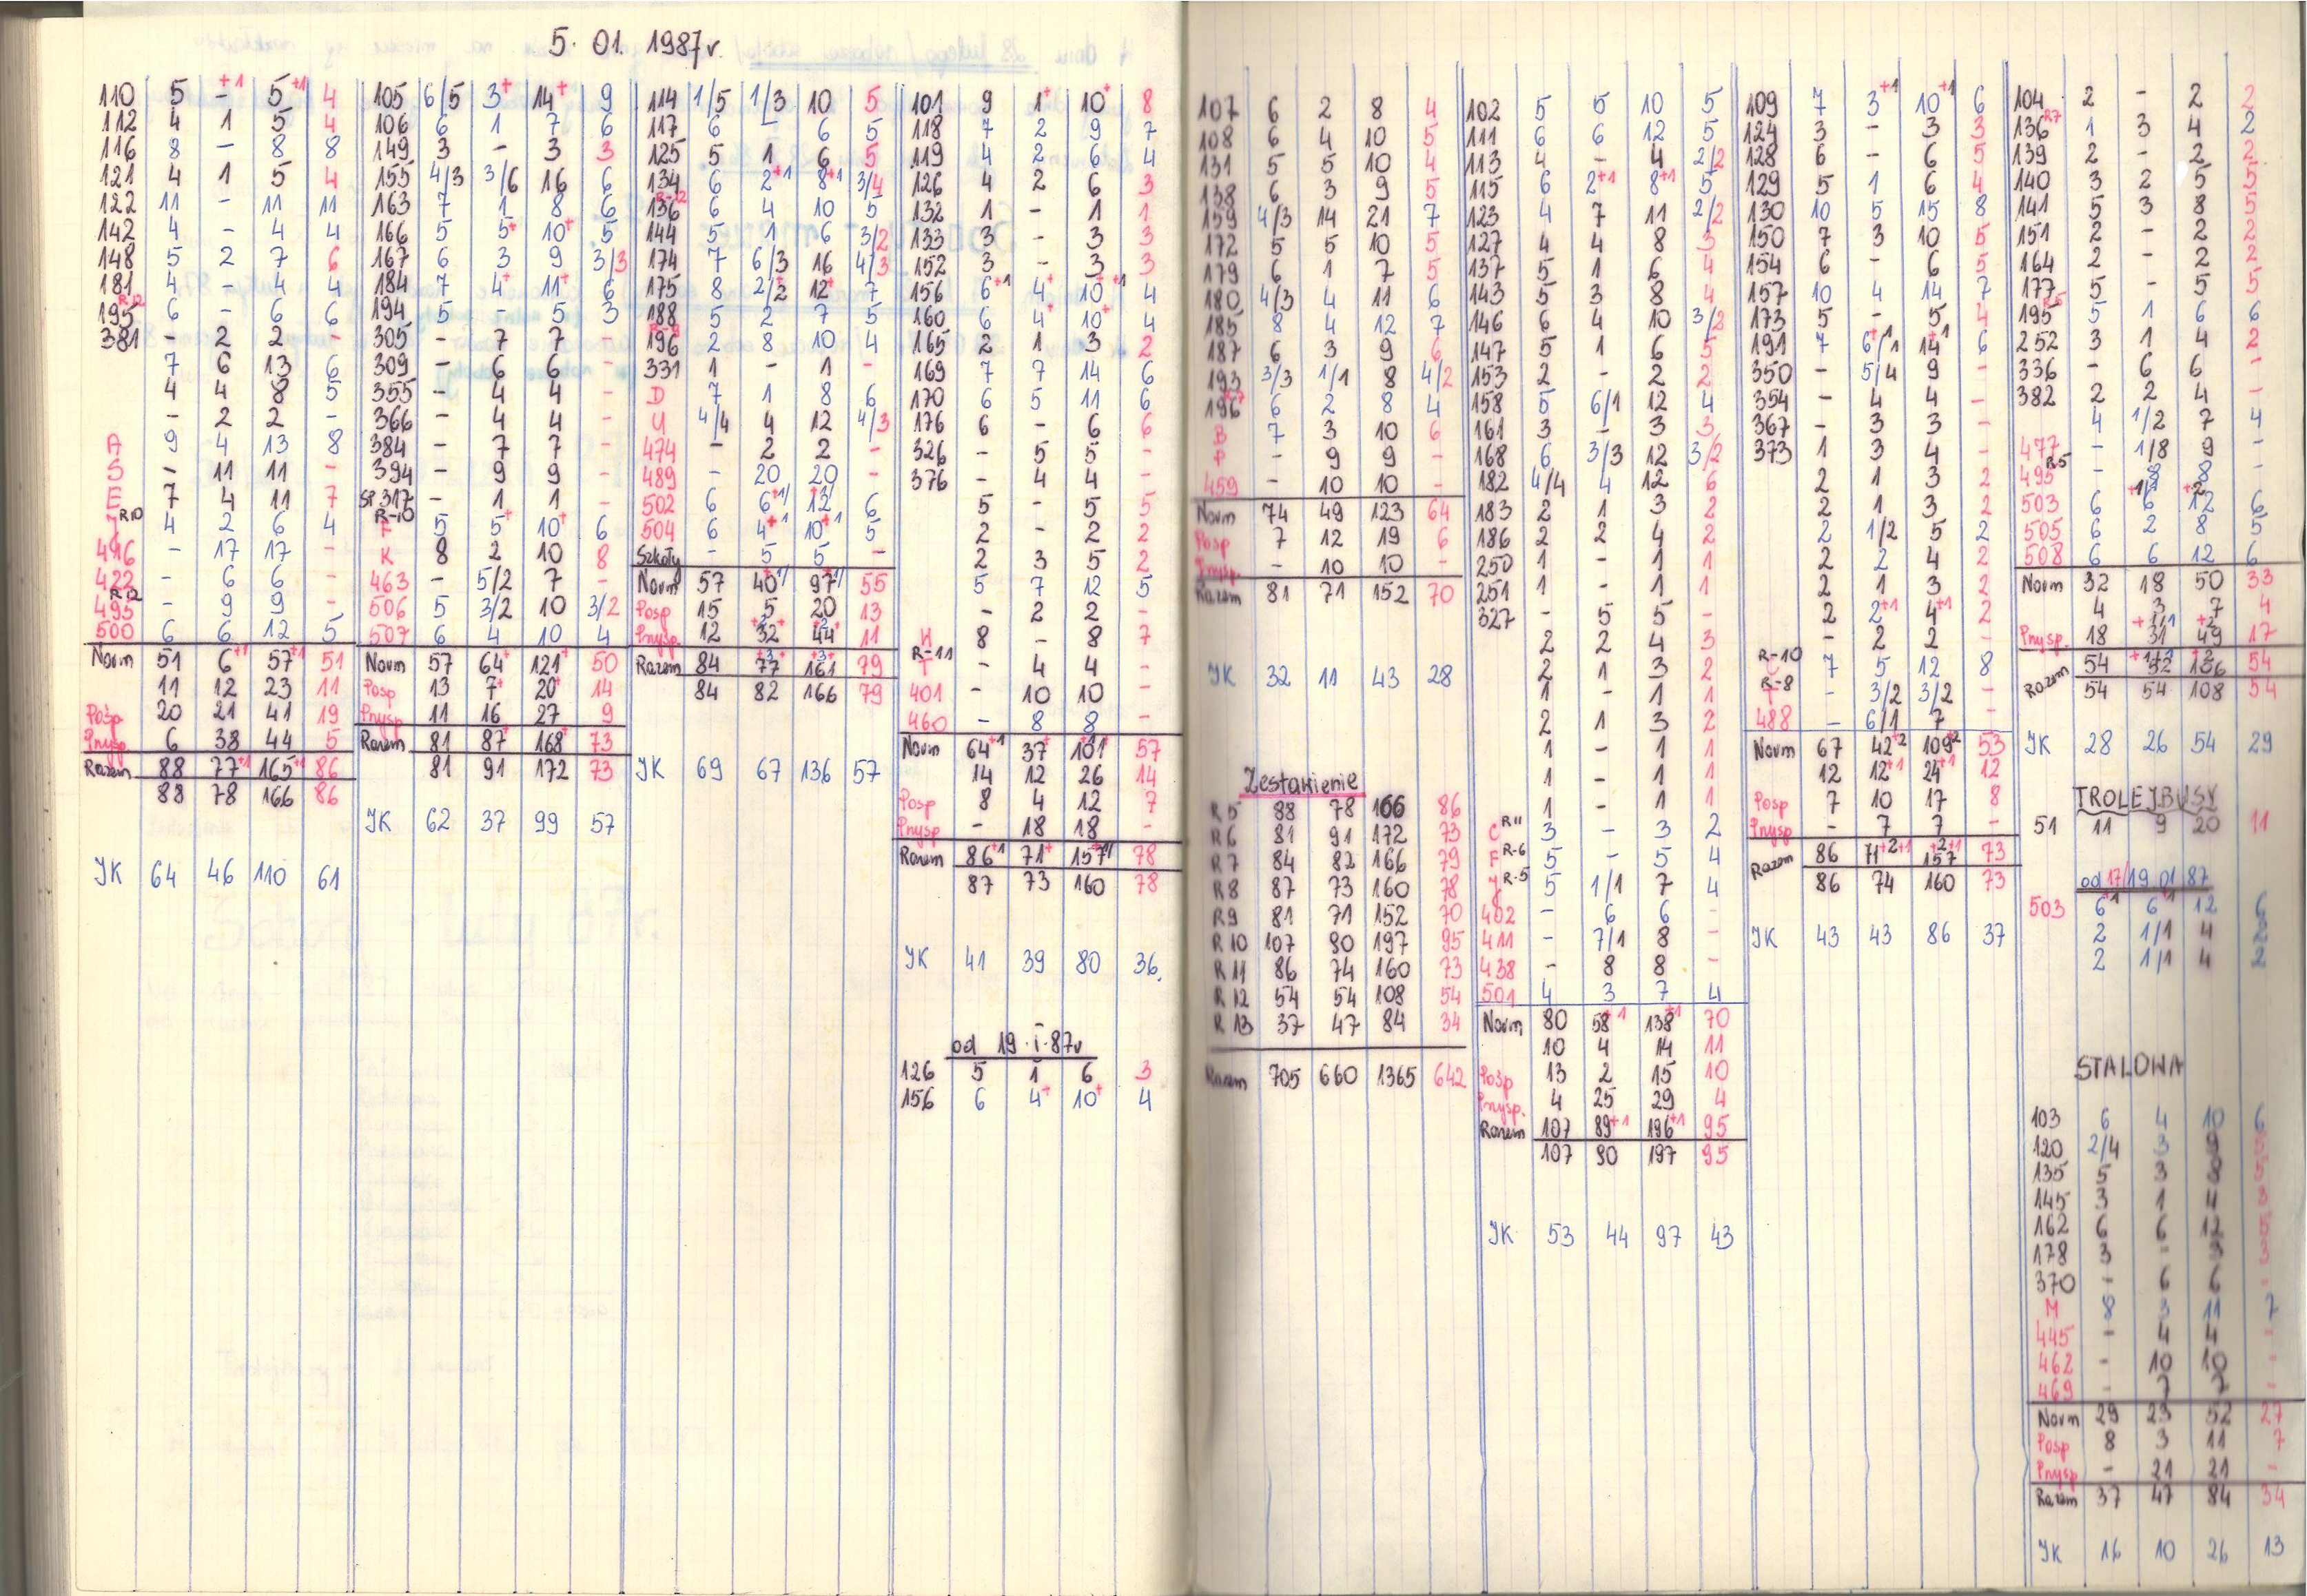 5. 01. 1987r.
110 5 -+1 5+1 4
112 4 1 5 4
116 8 - 8 8
121 4 1 5 4
122 11 - 11 11
142 4 - 4 4
148 5 2 7 6
181 4 - 4 4
195 R12 6 - 6 6
381 - 2 2 -
7 6 13 6
4 4 8 5
- 2 2 -
A 9 4 13 8
S - 11 11 -
E 7 4 11 7
J R10 4 2 6 4
416 - 17 17 -
422 - 6 6 -
495 R12 - 9 9 -
500 6 6 12 5
Norm 51 6+1 57+1 51
11 12 23 11
Pośp 20 21 41 19
Przysp 6 38 44 5
Razem 88 77+1 165+1 86
88 78 166 86
JK 64 46 110 61
105 6/5 3+ 14+ 9
106 6 1 7 6
149 3 - 3 3
155 4/3 3/6 16 6
163 7 1 8 6
166 5 5+ 10+ 5
167 6 3 9 3/3
184 7 4+ 11+ 6
194 5 - 5 3
305 - 7 7 -
309 - 6 6 -
355 - 4 4 -
366 - 4 4 -
384 - 7 7 -
394 - 9 9 -
SP 317 - 1 1 -
F R-10 5 5+ 10+ 6
K 8 2 10 8
463 - 5/2 7 -
506 5 3/2 10 3/2
507 6 4 10 4
Norm 57 64+ 121+ 50
Posp 13 7+ 20+ 14
Przysp 11 16 27 9
Razem 81 87+ 168+ 73
81 91 172 73
JK 62 37 99 57
114 1/5 1/3 10 5
117 6 - 6 5
125 5 1 6 5
134 6 2+1 8+1 3/4
136 R-12 6 4 10 5
144 5 1 6 3/2
174 7 6/3 16 4/3
175 8 2/2 12+ 7
188 5 2 7 5
196 R-9 2 8 10 4
331 1 - 1 -
D 7 1 8 6
U 4/4 4 12 4/3
474 - 2 2 -
489 - 20 20 -
502 6 6+1 12 6
504 6 4+1 10+1 5
Szkoły - 5 5 -
Norm 57 40 97 55
Posp 15 5 20 13
Przysp. 12 32 44 11
Razem 84 77+3 161+3 79
84 82 166 79
JK 69 67 136 57
101 9 1+ 10+ 8
118 7 2 9 7
119 4 2 6 4
126 4 2 6 3
132 1 - 1 1
133 3 - 3 3
152 3 - 3 3
156 6+1 4+ 10+1 4
160 6 4+ 10+ 4
165 2 1 3 2
169 7 7 14 6
170 6 5 11 6
176 6 - 6 6
326 - 5 5 -
376 - 4 4 -
5 - 5 5
2 - 2 2
2 3 5 2
5 7 12 5
- 2 2 -
H 8 - 8 7
T R-11 - 4 4 -
401 - 10 10 -
460 - 8 8 -
Norm 64+1 37+ 101+ 57
14 12 26 14
Posp 8 4 12 7
Przysp - 18 18 -
Razem 86+1 71+ 157 78
87 73 160 78
JK 41 39 80 36.
od 19.i.87r
126 5 1 6 3
156 6 4+ 10+ 4
107 6 2 8 4
108 6 4 10 5
131 5 5 10 4
138 6 3 9 5
159 4/3 14 21 7
172 5 5 10 5
179 6 1 7 5
180 4/3 4 11 6
185 8 4 12 7
187 6 3 9 6
193 3/3 1/1 8 4/2
196 R7 6 2 8 4
B 7 3 10 6
P - 9 9 -
459 - 10 10 -
Norm 74 49 123 64
Posp 7 12 19 6
Przysp. - 10 10 -
Razem 81 71 152 70
JK 32 11 43 28
Zestawienie
R 5 88 78 166 86
R 6 81 91 172 73
R 7 84 82 166 79
R 8 87 73 160 78
R 9 81 71 152 70
R 10 107 90 197 95
R 11 86 74 160 73
R 12 54 54 108 54
R 13 37 47 84 34
Razem 705 660 1365 642
102 5 5 10 5
111 6 6 12 5
113 4 - 4 2/2
115 6 2+1 8+1 5
123 4 7 11 2/2
127 4 4 8 3
137 5 1 6 4
143 5 3 8 4
146 6 4 10 3/2
147 5 1 6 5
153 2 - 2 2
158 5 6/1 12 4
161 3 - 3 3
168 6 3/3 12 3/2
182 4/4 4 12 6
183 2 1 3 2
186 2 2 4 2
250 1 - 1 1
251 1 - 1 1
327 - 5 5 -
2 2 4 3
2 1 3 2
1 - 1 1
2 1 3 2
1 - 1 1
1 - 1 1
1 - 1 1
C R11 3 - 3 2
F R-6 5 - 5 4
J R-5 5 1/1 7 4
402 - 6 6 -
411 - 7/1 8 -
438 - 8 8 -
501 4 3 7 4
Norm 80 58+1 138+1 70
10 4 14 11
Pośp 13 2 15 10
Przysp. 4 25 29 4
Razem 107 89+1 196+1 95
107 90 197 95
JK 53 44 97 43
109 7 3+1 10+1 6
124 3 - 3 3
128 6 - 6 5
129 5 1 6 4
130 10 5 15 8
150 7 3 10 5
154 6 - 6 5
157 10 4 14 7
173 5 - 5 4
191 7 6/1 14 6
350 - 5/4 9 -
354 - 4 4 -
367 - 3 3 -
373 1 3 4 -
2 1 3 2
2 1 3 2
2 1/2 5 2
2 2 4 2
2 1 3 2
2 2+1 4+1 2
- 2 2 -
C R-10 7 5 12 8
T R-8 - 3/2 3/2 -
488 - 6/1 7 -
Norm 67 42+2 109+2 53
12 12+1 24+1 12
Posp 7 10 17 8
Przysp - 7 7 -
Razem 86 71+2+1 157+2+1 73
86 74 160 73
JK 43 43 86 37
104 2 - 2 2
136 R7 1 3 4 2
139 2 - 2 2
140 3 2 5 5
141 5 3 8 5
151 2 - 2 2
164 2 - 2 2
177 5 - 5 5
195 R5 5 1 6 6
252 3 1 4 2
336 - 6 6 -
382 2 2 4 -
4 1/2 7 4
477 - 1/8 9 -
495 R5 - 8 8 -
503 6 6 12 6
505 6 2 8 5
508 6 6 12 6
Norm 32 18 50 33
4 3 7 4
Przysp. 18 31 49 17
Razem 54 52 106 54
54 54 108 54
JK 28 26 54 29
TROLEJBUSY
51 11 9 20 11
od 17/19 01 87
503 6 6 12 6
2 1/1 4 2
2 1/1 4 2
STALOWA
103 6 4 10 6
120 2/4 3 9 5
135 5 3 8 5
145 3 1 4 3
162 6 6 12 5
178 3 - 3 3
370 - 6 6 -
M 8 3 11 7
445 - 4 4 -
462 - 10 10 -
469 - 7 7 -
Norm 29 23 52 27
Posp 8 3 11 7
Przysp - 21 21 -
Razem 37 47 84 34
JK 16 10 26 13